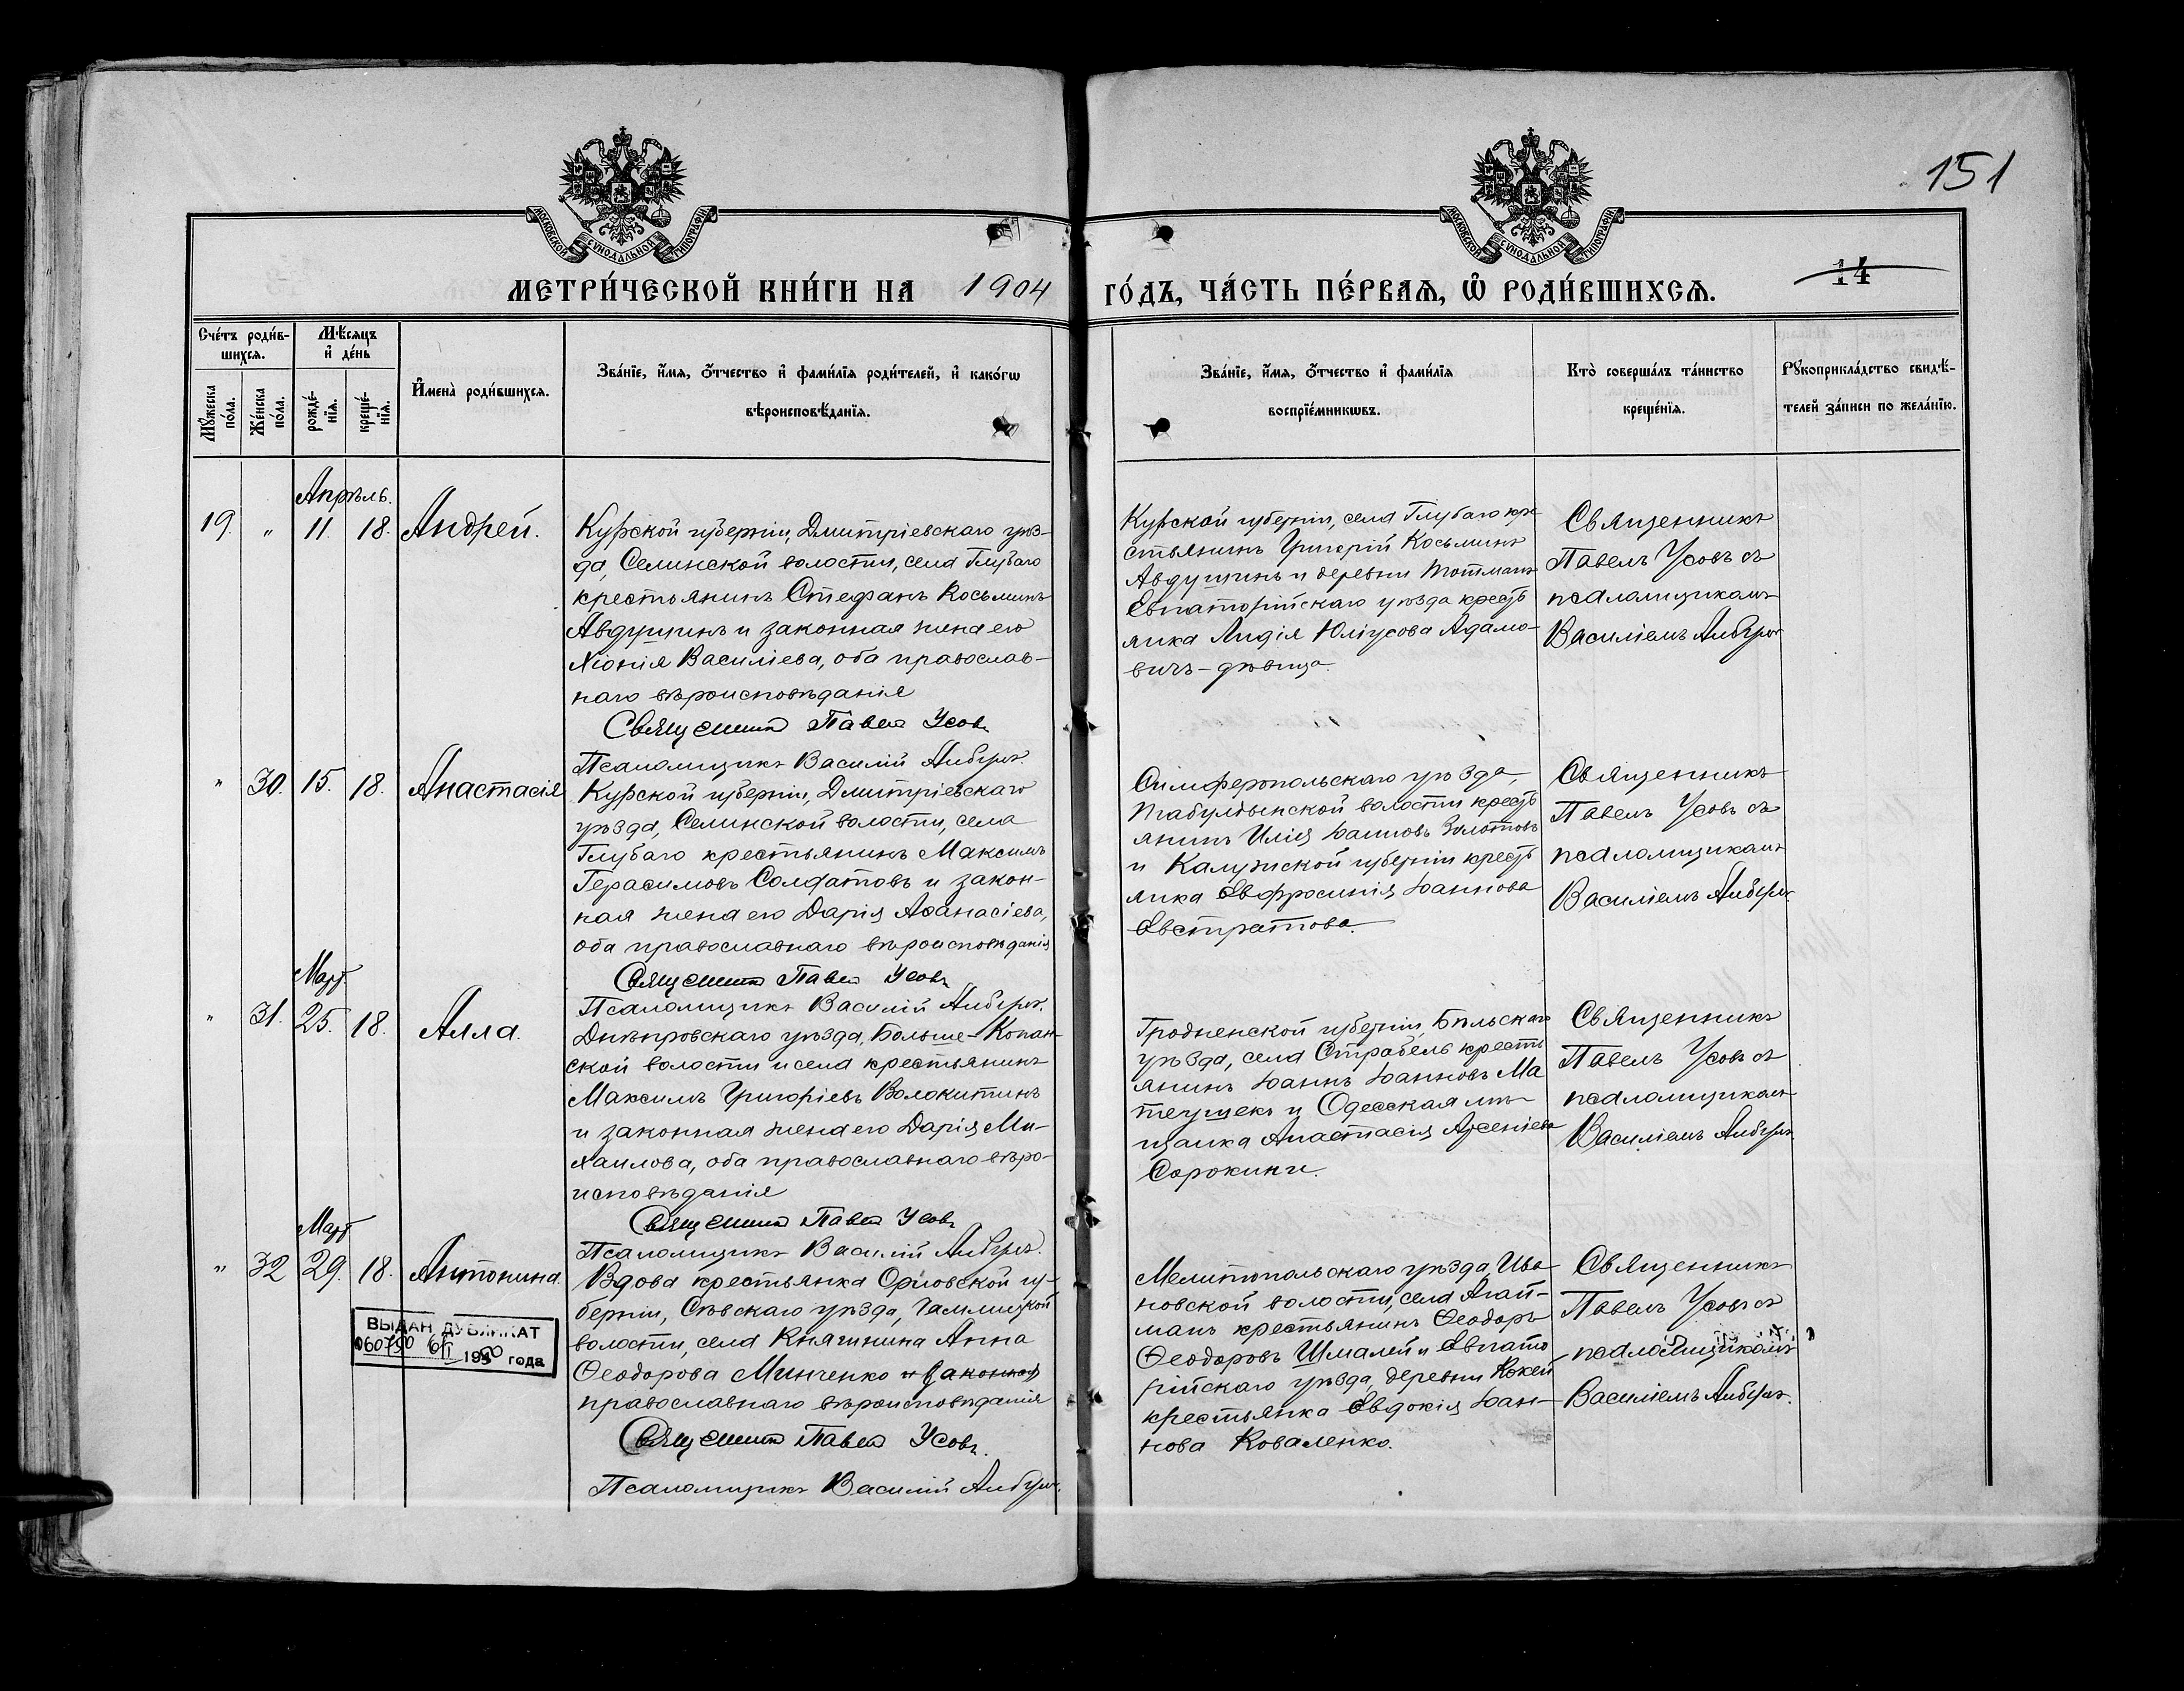 151
МОСКОВСКОЙ СѴНОДАЛЬНОЙ ТИПОГРАФІИ
МОСКОВСКОЙ СѴНОДАЛЬНОЙ ТИПОГРАФІИ
МЕТРИ́ЧЕСКОЙ КНИ́ГИ НА 1904 ГО́ДЪ, ЧА́СТЬ ПЕ́РВАѦ, Ѽ РОДИ́ВШИХСѦ.
14
Сче́тъ роди́в-
шихсѧ.
Мѣ́сѧцъ
и҆ де́нь
Мꙋ́жеска
по́ла.
Же́нска
по́ла.
рожде́-
нїѧ.
креще́-
нїѧ.
И҆мена̀ роди́вшихсѧ.
Зва́нїе, и҆́мѧ, ѻ҆́тчество и҆ фами́лїѧ роди́телей, и҆ како́гѡ
вѣроисповѣ́данїѧ.
Зва́нїе, и҆́мѧ, ѻ҆́тчество и҆ фами́лїѧ
воспрїе́мникѡвъ.
Кто̀ соверша́лъ та́инство
креще́нїѧ.
Рꙋкоприкла́дство свидѣ́-
телей за́писи по жела́нїю.
Апрѣль.
19. " 11. 18. Андрей.
Курской губерніи, Дмитріевскаго уѣз-
да, Селинской волости, села Глубаго
крестьянинъ Стефанъ Косьминъ
Авдушинъ и законная жена его
Хіонія Василіева, оба православ-
наго вѣроисповѣданія
Священникъ Павел Усовъ
Псаломщикъ Василій
Курской губерніи, села Глубаго кре
стьянинъ Григорій Косьминъ
Авдушинъ и деревни
Евпаторійскаго уѣзда кресть
янка Лидія Юліусова Адамо-
вичъ - дѣвица.
Священникъ
Павелъ Усовъ съ
псаломщикомъ
Василіемъ
" 30. 15. 18. Анастасія
Курской губерніи, Дмитріевскаго
уѣзда, Селинской волости, села
Глубаго крестьянинъ Максимъ
Герасимовъ Солдатовъ и закон-
ная жена его Дарія Аѳанасіева,
оба православнаго вѣроисповѣданія
Священникъ Павел Усовъ
Псаломщикъ Василій
Симферопольскаго уѣзда,
Табулдынской волости кресть
янинъ Илія Іанновъ Золотовъ
и Калужской губерніи кресть
янка Евфросинія Іоаннова
Евстратова.
Священникъ
Павелъ Усовъ съ
псаломщикомъ
Василіемъ
Март.
" 31. 25. 18. Алла.
Днѣпровскаго уѣзда, Больше-Копан-
ской волости и села крестьянинъ
Максимъ Григоріевъ Волокитинъ
и законная жена его Дарія Ми-
хаилова, оба православнаго вѣро-
исповѣданія
Священникъ Павел Усовъ
Псаломщикъ Василій
Гродненской губерніи, Бѣльскаго
уѣзда, села кресть
янинъ Іоаннъ Іоанновъ Ма
теушекъ и Одесская мѣ-
щанка Анастасія Арсеніева
Сорокина.
Священникъ
Павелъ Усовъ съ
псаломщикомъ
Василіемъ
Март
" 32 29. 18. Антонина.
Вдова крестьянка Орловской гу-
берніи, Сѣвскаго уѣзда,
волости, села Княгинина Анна
Ѳеодорова Минченко и законная
православнаго вѣроисповѣданія
Священникъ Павел Усовъ.
Псаломщикъ Василій
Мелитопольскаго уѣзда, Ива
новской волости, села Агай-
манъ крестьянинъ Ѳеодоръ
Ѳеодоровъ Шмалей и Евпато
рійскаго уѣзда, деревни
крестьянка Евдокія Іоан-
нова Коваленко.
Священникъ
Павелъ Усовъ съ
псаломщикомъ
Василіемъ
ВЫДАН ДУБЛИКАТ
060750 года